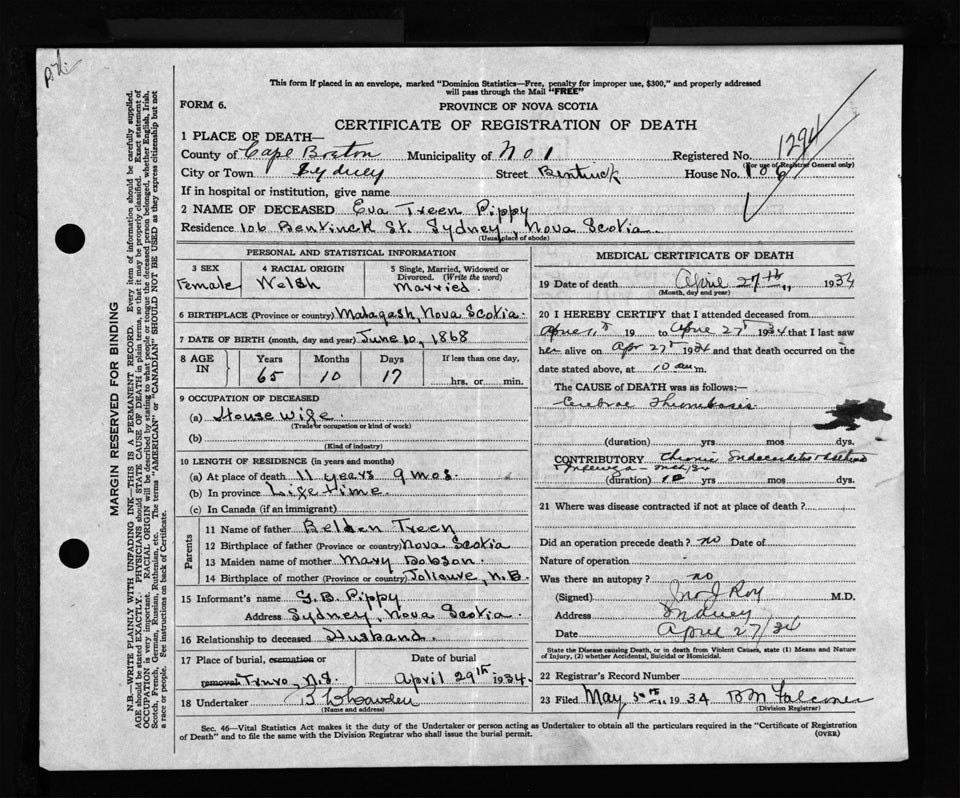 This form if placed in an envelope, marked "Dominion Statistics—Free, penalty for improper use, $300," and properly addressed
will pass through the Mail "FREE"
FORM 6.
PROVINCE OF NOVA SCOTIA
CERTIFICATE OF REGISTRATION OF DEATH
1294
1 PLACE OF DEATH—
County of Cape Breton Municipality of No 1 Registered No.
(For use of Registrar General only)
City or Town Sydney Street Bentinck House No. 106
If in hospital or institution, give name
2 NAME OF DECEASED Eva Treen Pippy
Residence 106 Bentinck St. Sydney, Nova Scotia.
(Usual place of abode)
PERSONAL AND STATISTICAL INFORMATION
3 SEX 4 RACIAL ORIGIN 5 Single, Married, Widowed or
Divorced. (Write the word)
Female Welsh Married.
6 BIRTHPLACE (Province or country) Malagash, Nova Scotia.
7 DATE OF BIRTH (month, day and year) June 10, 1868
8 AGE IN Years Months Days If less than one day,
65 10 17 hrs. or min.
9 OCCUPATION OF DECEASED
(a) Housewife.
(Trade or occupation or kind of work)
(b)
(Kind of industry)
10 LENGTH OF RESIDENCE (in years and months)
(a) At place of death 11 years 9 mos.
(b) In province Life time.
(c) In Canada (if an immigrant)
Parents
11 Name of father Belden Treen
12 Birthplace of father (Province or country) Nova Scotia
13 Maiden name of mother Mary Dobson.
14 Birthplace of mother (Province or country) Jolicure, N.B.
15 Informant's name G.B. Pippy
Address Sydney, Nova Scotia
16 Relationship to deceased Husband.
17 Place of burial, cremation or Date of burial
removal Truro, N.S. April 29th 1934.
18 Undertaker
(Name and address)
MEDICAL CERTIFICATE OF DEATH
19 Date of death April 27th 1934
(Month, day and year)
20 I HEREBY CERTIFY that I attended deceased from
April 19 to April 27th 1934 that I last saw
her alive on Apr 27th 1934 and that death occurred on the
date stated above, at 10 am m.
The CAUSE of DEATH was as follows:—
Cerebral Thrombosis
(duration) yrs mos dys.
CONTRIBUTORY Chronic Endocarditis
Influenza
(duration) yrs mos dys.
21 Where was disease contracted if not at place of death?
Did an operation precede death? no Date of
Nature of operation
Was there an autopsy? no
(Signed) Jno J Roy M.D.
Address Sydney
Date April 27/34
State the Disease causing Death, or in death from Violent Causes, state (1) Means and Nature
of Injury, (2) whether Accidental, Suicidal or Homicidal.
22 Registrar's Record Number
23 Filed May 5th 1934
(Division Registrar)
Sec. 46—Vital Statistics Act makes it the duty of the Undertaker or person acting as Undertaker to obtain all the particulars required in the "Certificate of Registration
of Death" and to file the same with the Division Registrar who shall issue the burial permit.
(OVER)
MARGIN RESERVED FOR BINDING
N.B.—WRITE PLAINLY WITH UNFADING INK—THIS IS A PERMANENT RECORD. Every item of information should be carefully supplied.
AGE should be stated EXACTLY. PHYSICIANS should STATE CAUSE OF DEATH in plain terms, so that it may be properly classified. Exact statement of
OCCUPATION is very important. RACIAL ORIGIN will be described by stating to what people or tongue the deceased person belonged, whether English, Irish,
Scotch, French, German, Russian, Ruthenian, etc. The terms "AMERICAN" or "CANADIAN" SHOULD NOT BE USED as they express citizenship but not
a race or people. See instructions on back of Certificate.